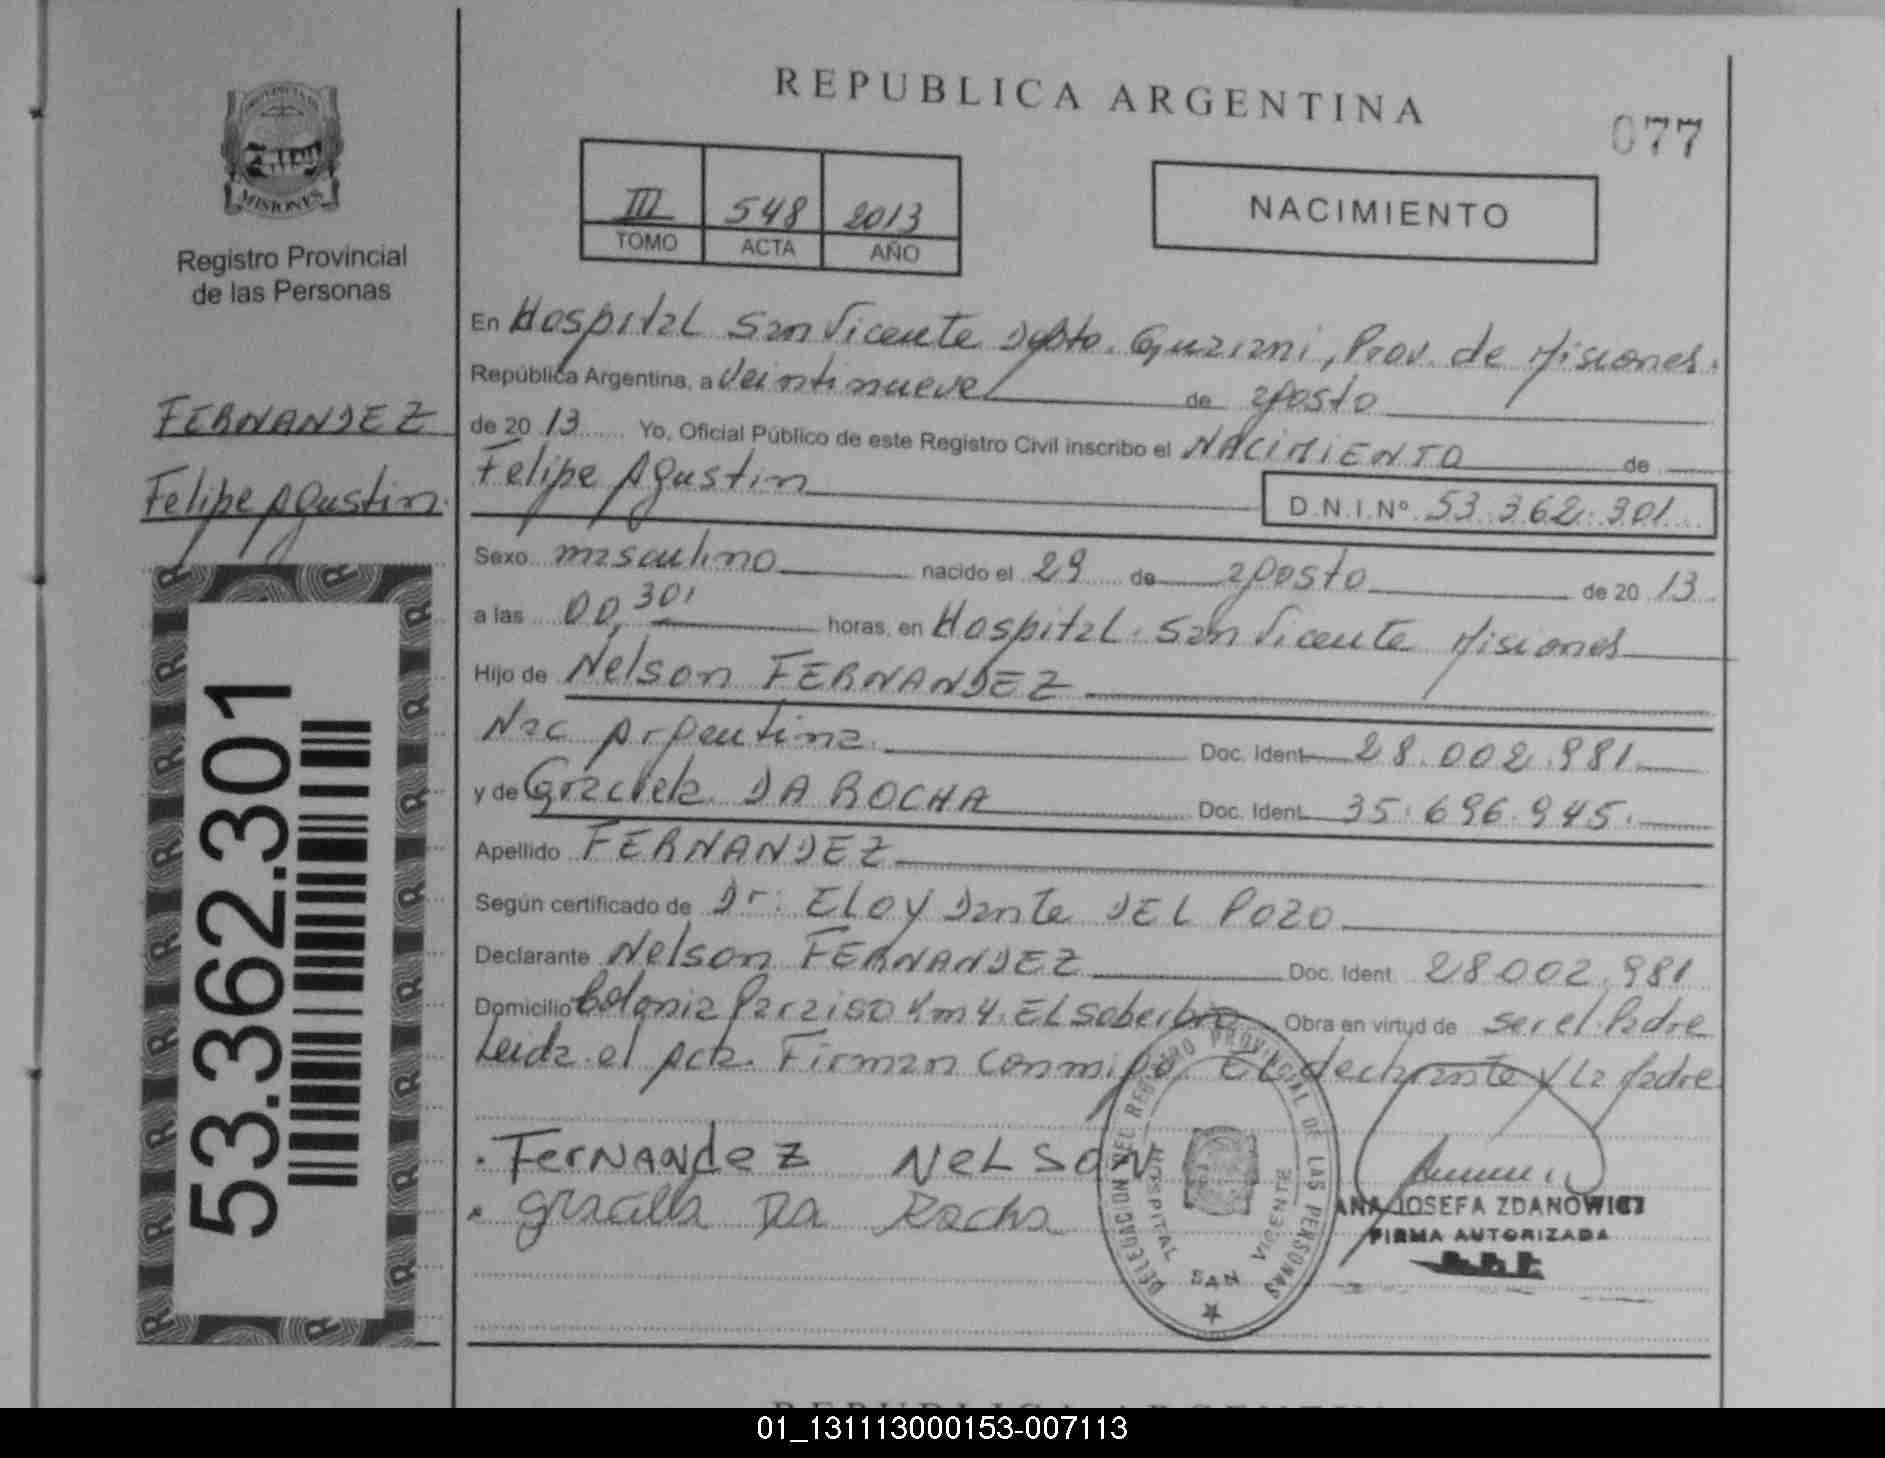 REPUBLICA ARGENTINA
077
MISIONES
Registro Provincial
de las Personas
III 548 2013
TOMO ACTA AÑO
NACIMIENTO
FERNANDEZ
Felipe Agustin.
53.362.301
En Hospital San Vicente Dpto. Guarani, Prov. de Misiones.
República Argentina, a veintinueve de agosto
de 2013 Yo, Oficial Público de este Registro Civil inscribo el NACIMIENTO de
Felipe Agustin D.N.I.Nº 53.362.301
Sexo masculino nacido el 29 de agosto de 2013
a las 00,30' horas, en Hospital San Vicente Misiones
Hijo de Nelson FERNANDEZ
Nac Argentina Doc. Ident. 28.002.981.
y de Graciela DA ROCHA Doc. Ident. 35.696.945.
Apellido FERNANDEZ
Según certificado de Dr: ELOY Dante DEL POZO
Declarante Nelson FERNANDEZ Doc. Ident. 28002.981
Domicilio Colonia Paraiso Km 4. EL Soberbio Obra en virtud de ser el Padre
Leida el Acta. Firman conmigo EL declarante y La Madre
FerNANdeZ NeLSON
graciela Da Rocha
DELEGACION DEL REGISTRO PROVINCIAL DE LAS PERSONAS
HOSPITAL SAN VICENTE
ANA JOSEFA ZDANOWICZ
FIRMA AUTORIZADA
REPUBLICA ARGENTINA
01_131113000153-007113